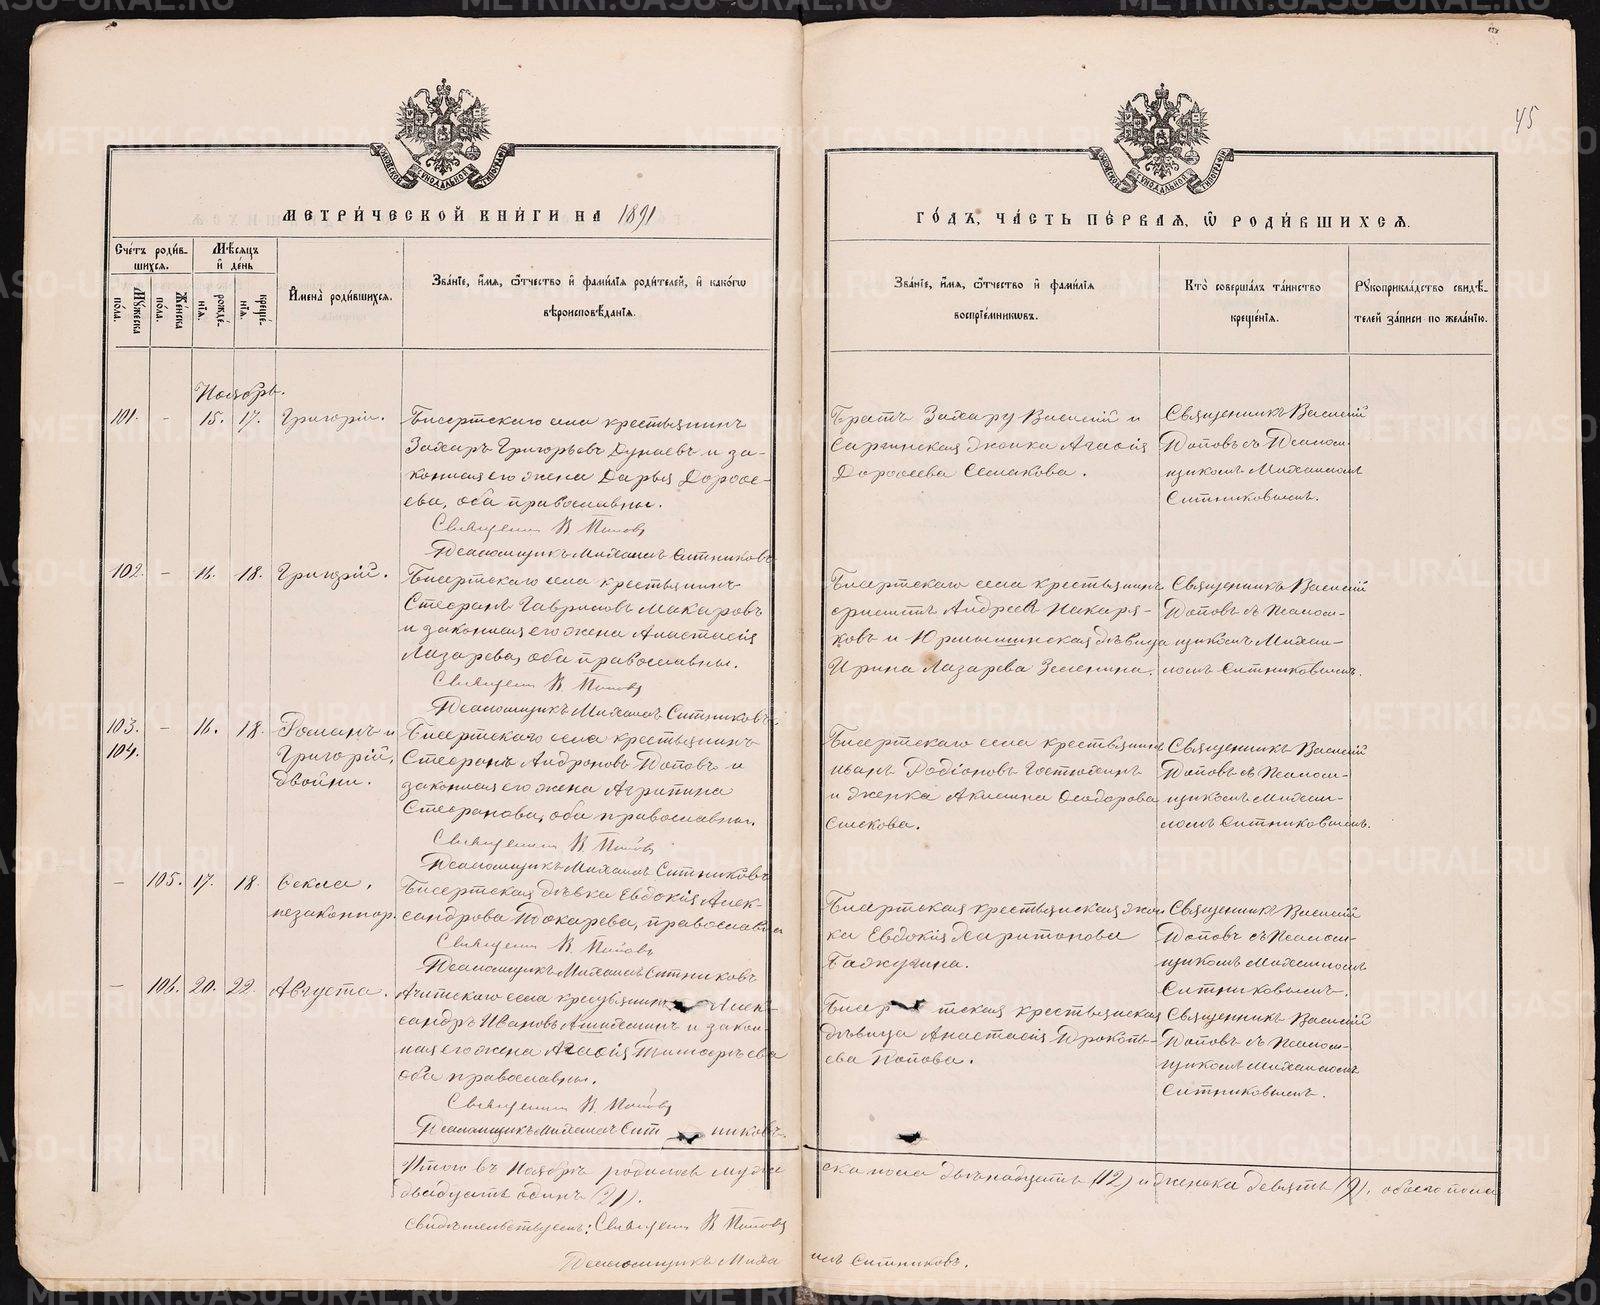 45
МЕТРИ́ЧЕСКОЙ КНИ́ГИ НА 1891
ГО́ДЪ, ЧА́СТЬ ПЕ́РВАЯ, Ѡ РОДИ́ВШИХСЯ.
Сче́тъ роди́в-
шихся.
Му́жеска по́ла.
Же́нска по́ла.
Мѣ́сяцъ
и де́нь
рожде́нїя.
креще́нїя.
И́мена̀ роди́вшихся.
Зва́нїе, и́мя, ѻ́тчество и фами́лїя роди́телей, и како́гѡ
вѣроисповѣ́данїя.
Зва́нїе, и́мя, ѻ́тчество и фами́лїя
воспрїе́мниковъ.
Кто̀ соверша́лъ та́инство
креще́нїя.
Рꙋкоприкла́дство свидѣ́-
телей за́писи по жела́нїю.
Ноябрь.
101. - 15. 17. Григорій.
Бисертскаго села крестьянинъ
Захаръ Григорьевъ Дунаевъ и за-
конная его жена Дарья Дорофе-
ева, оба православны.
Священникъ В. Поповъ
Псаломщикъ Михаилъ Ситниковъ
Братъ Захару Василій и
Саргинская женка Агафія
Дорофеева Семакова.
Священникъ Василій
Поповъ съ Псалом-
щикомъ Михаиломъ
Ситниковымъ.
102. - 16. 18. Григорій.
Бисертскаго села крестьянинъ
Стефанъ Гавриловъ Макаровъ
и законная его жена Анастасія
Лазарева, оба православны.
Священникъ В. Поповъ
Псаломщикъ Михаилъ Ситниковъ.
Бисертскаго села крестьянинъ
Андреевъ Пискаря-
ковъ и дѣвица
Ирина Лазарева Зеленина.
Священникъ Василій
Поповъ съ Псалом-
щикомъ Михаи-
ломъ Ситниковымъ.
103. - 16. 18. Романъ и
104. Григорій,
двойни.
Бисертскаго села крестьянинъ
Стефанъ Андроновъ Поповъ и
законная его жена Агрипина
Стефанова, оба православны.
Священникъ В. Поповъ
Псаломщикъ Михаилъ Ситниковъ
Бисертскаго села крестьянинъ
Иванъ Родіоновъ Гостюхинъ
и женка Акилина Ѳеодорова
Священникъ Василій
Поповъ съ Псалом-
щикомъ Михаи-
ломъ Ситниковымъ.
- 105. 17. 18. Ѳекла,
незаконнор.
Бисертская дѣвка Евдокія Алек-
сандрова Токарева, православна
Священникъ В. Поповъ
Псаломщикъ Михаилъ Ситниковъ
Бисертская крестьянская жен-
ка Евдокія Харитонова
Священникъ Василій
Поповъ съ Псалом-
щикомъ Михаиломъ
Ситниковымъ.
- 106. 20. 22. Августа.
Ачитскаго села крестьянинъ Алек-
сандръ Ивановъ и закон-
ная его жена Агафія Тимофеева
оба православны.
Священникъ В. Поповъ
Псаломщикъ Михаилъ Ситниковъ.
Бисертская крестьянская
дѣвица Анастасія Прокопь-
ева Попова.
Священникъ Василій
Поповъ съ Псалом-
щикомъ Михаиломъ
Ситниковымъ.
Итого въ Ноябрѣ родилось муже
ска пола двѣнадцать (12) и женска девять (9), обоего пола
двадцать одинъ (21).
Свидѣтельствуемъ: Священникъ В. Поповъ
Псаломщикъ Михаилъ Ситниковъ.